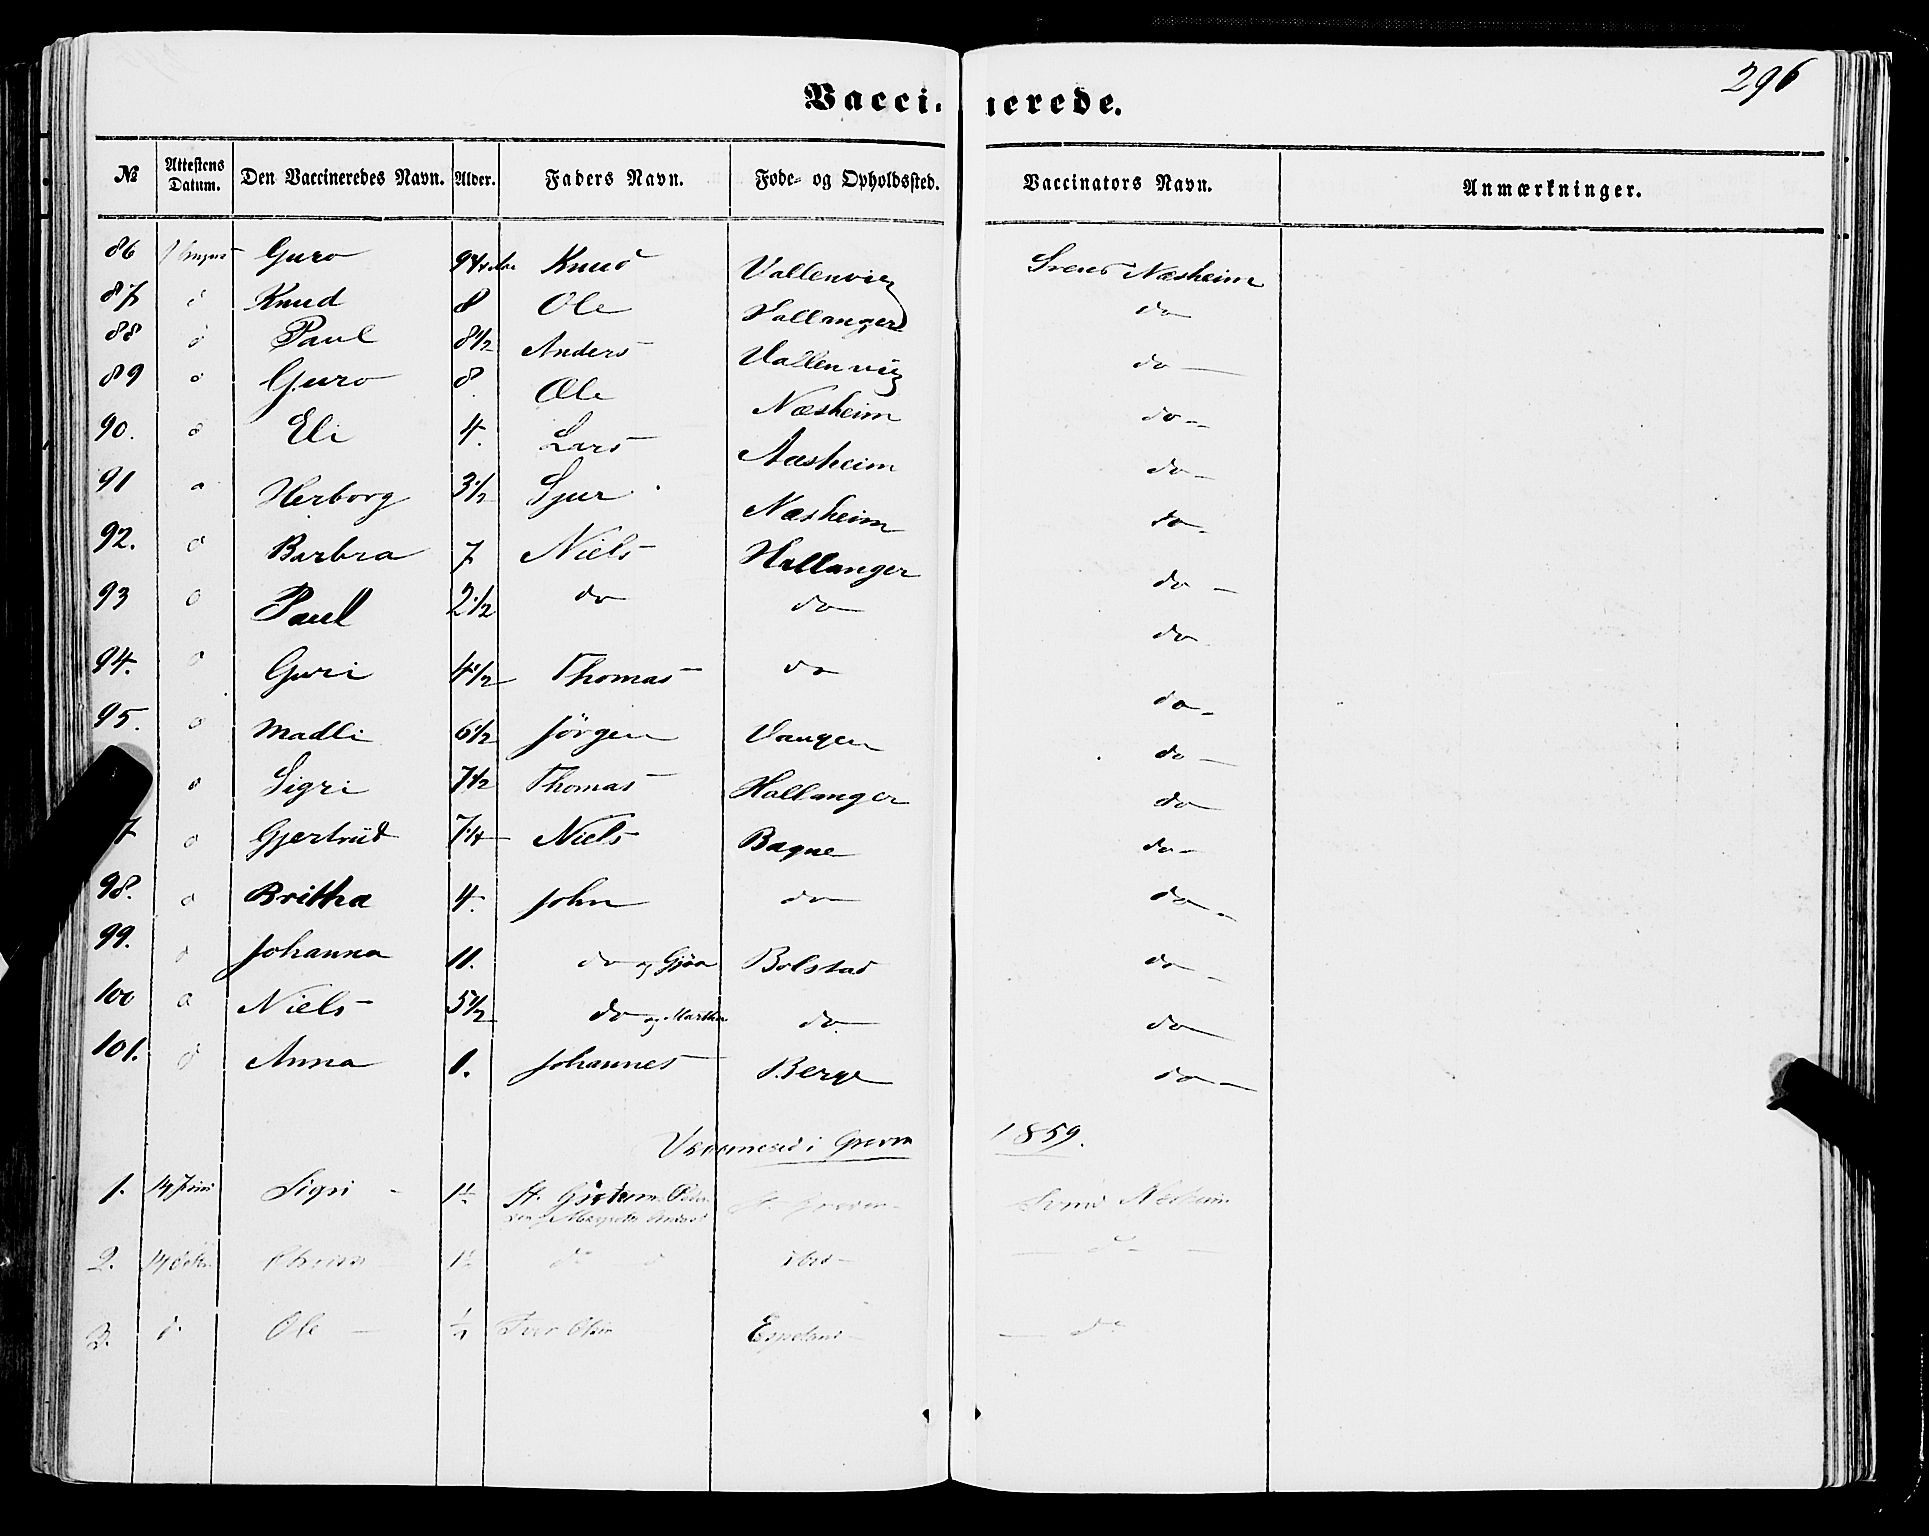 296
Vaccinerede.
№ Attestens Datum. Den Vaccineredes Navn. Alder. Faders Navn. Føde- og Opholdssted. Vaccinators Navn. Anmærkninger.
86 Guro Knud Vallenvig Svend Næsheim
87 d Knud 8 Ole Hallanger do
88 d Paul 8 1/2 Anders Vallenvig do
89 d Guro 8. Ole Næsheim do
90. d Eli 4. Lars Aasheim do
91 d Herborg 3 1/2 Sjur Næsheim do
92. d Barbra 7 Niels Hallanger do
93 d Paul 2 1/2 do do do
94. d Guri 4 1/2 Thomas do do
95. d Madli 6 1/2 Jörgen Vangen do
d Sigri 7 1/2 Thomas Hallanger do
7 d Gjertrud 7 1/4 Niels Bagne do
98. d Britha 4. John do do
99. d Johanna 11. do og Gjøa Bolstad do
100 d Niels 5 1/2 do og Martha do do
101. d Anna 1. Johannes Berge do
Vaccinered i Graven 1859.
1. 14 Juni Sigri 1 1/2 Svend Nesheim
2. 14 do
3. d Ole Espeland do